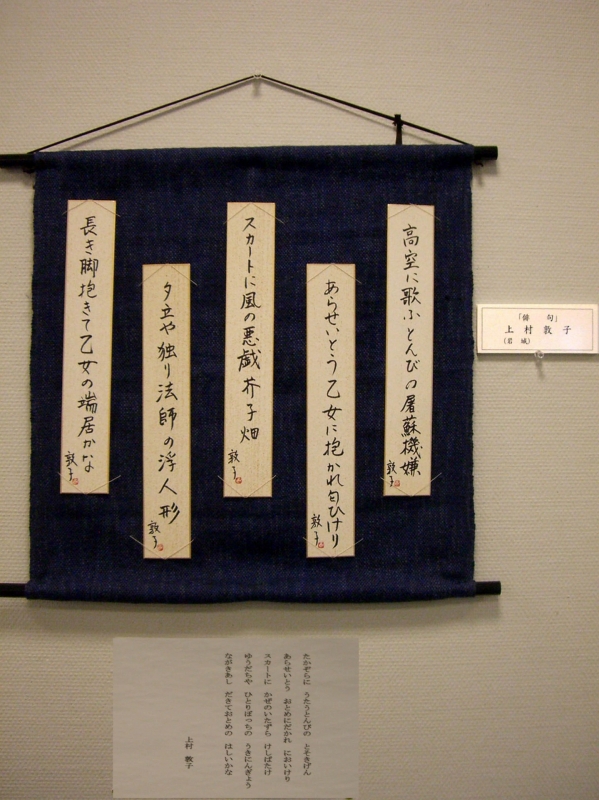 高空に歌ふとんびの屠蘇機嫌
敦子
あらせいとう乙女に抱かれ匂ひけり
敦子
スカートに風の悪戯芥子畑
敦子
夕立や独り法師の浮人形
敦子
長き脚抱きて乙女の端居かな
敦子
「俳 句」
上村 敦子
(岩城)
たかぞらに うたうとんびの とそきげん
あらせいとう おとめにだかれ においけり
スカートに かぜのいたずら けしばたけ
ゆうだちや ひとりぼっちの うきにんぎょう
ながきあし だきておとめの はしいかな
上村 敦子